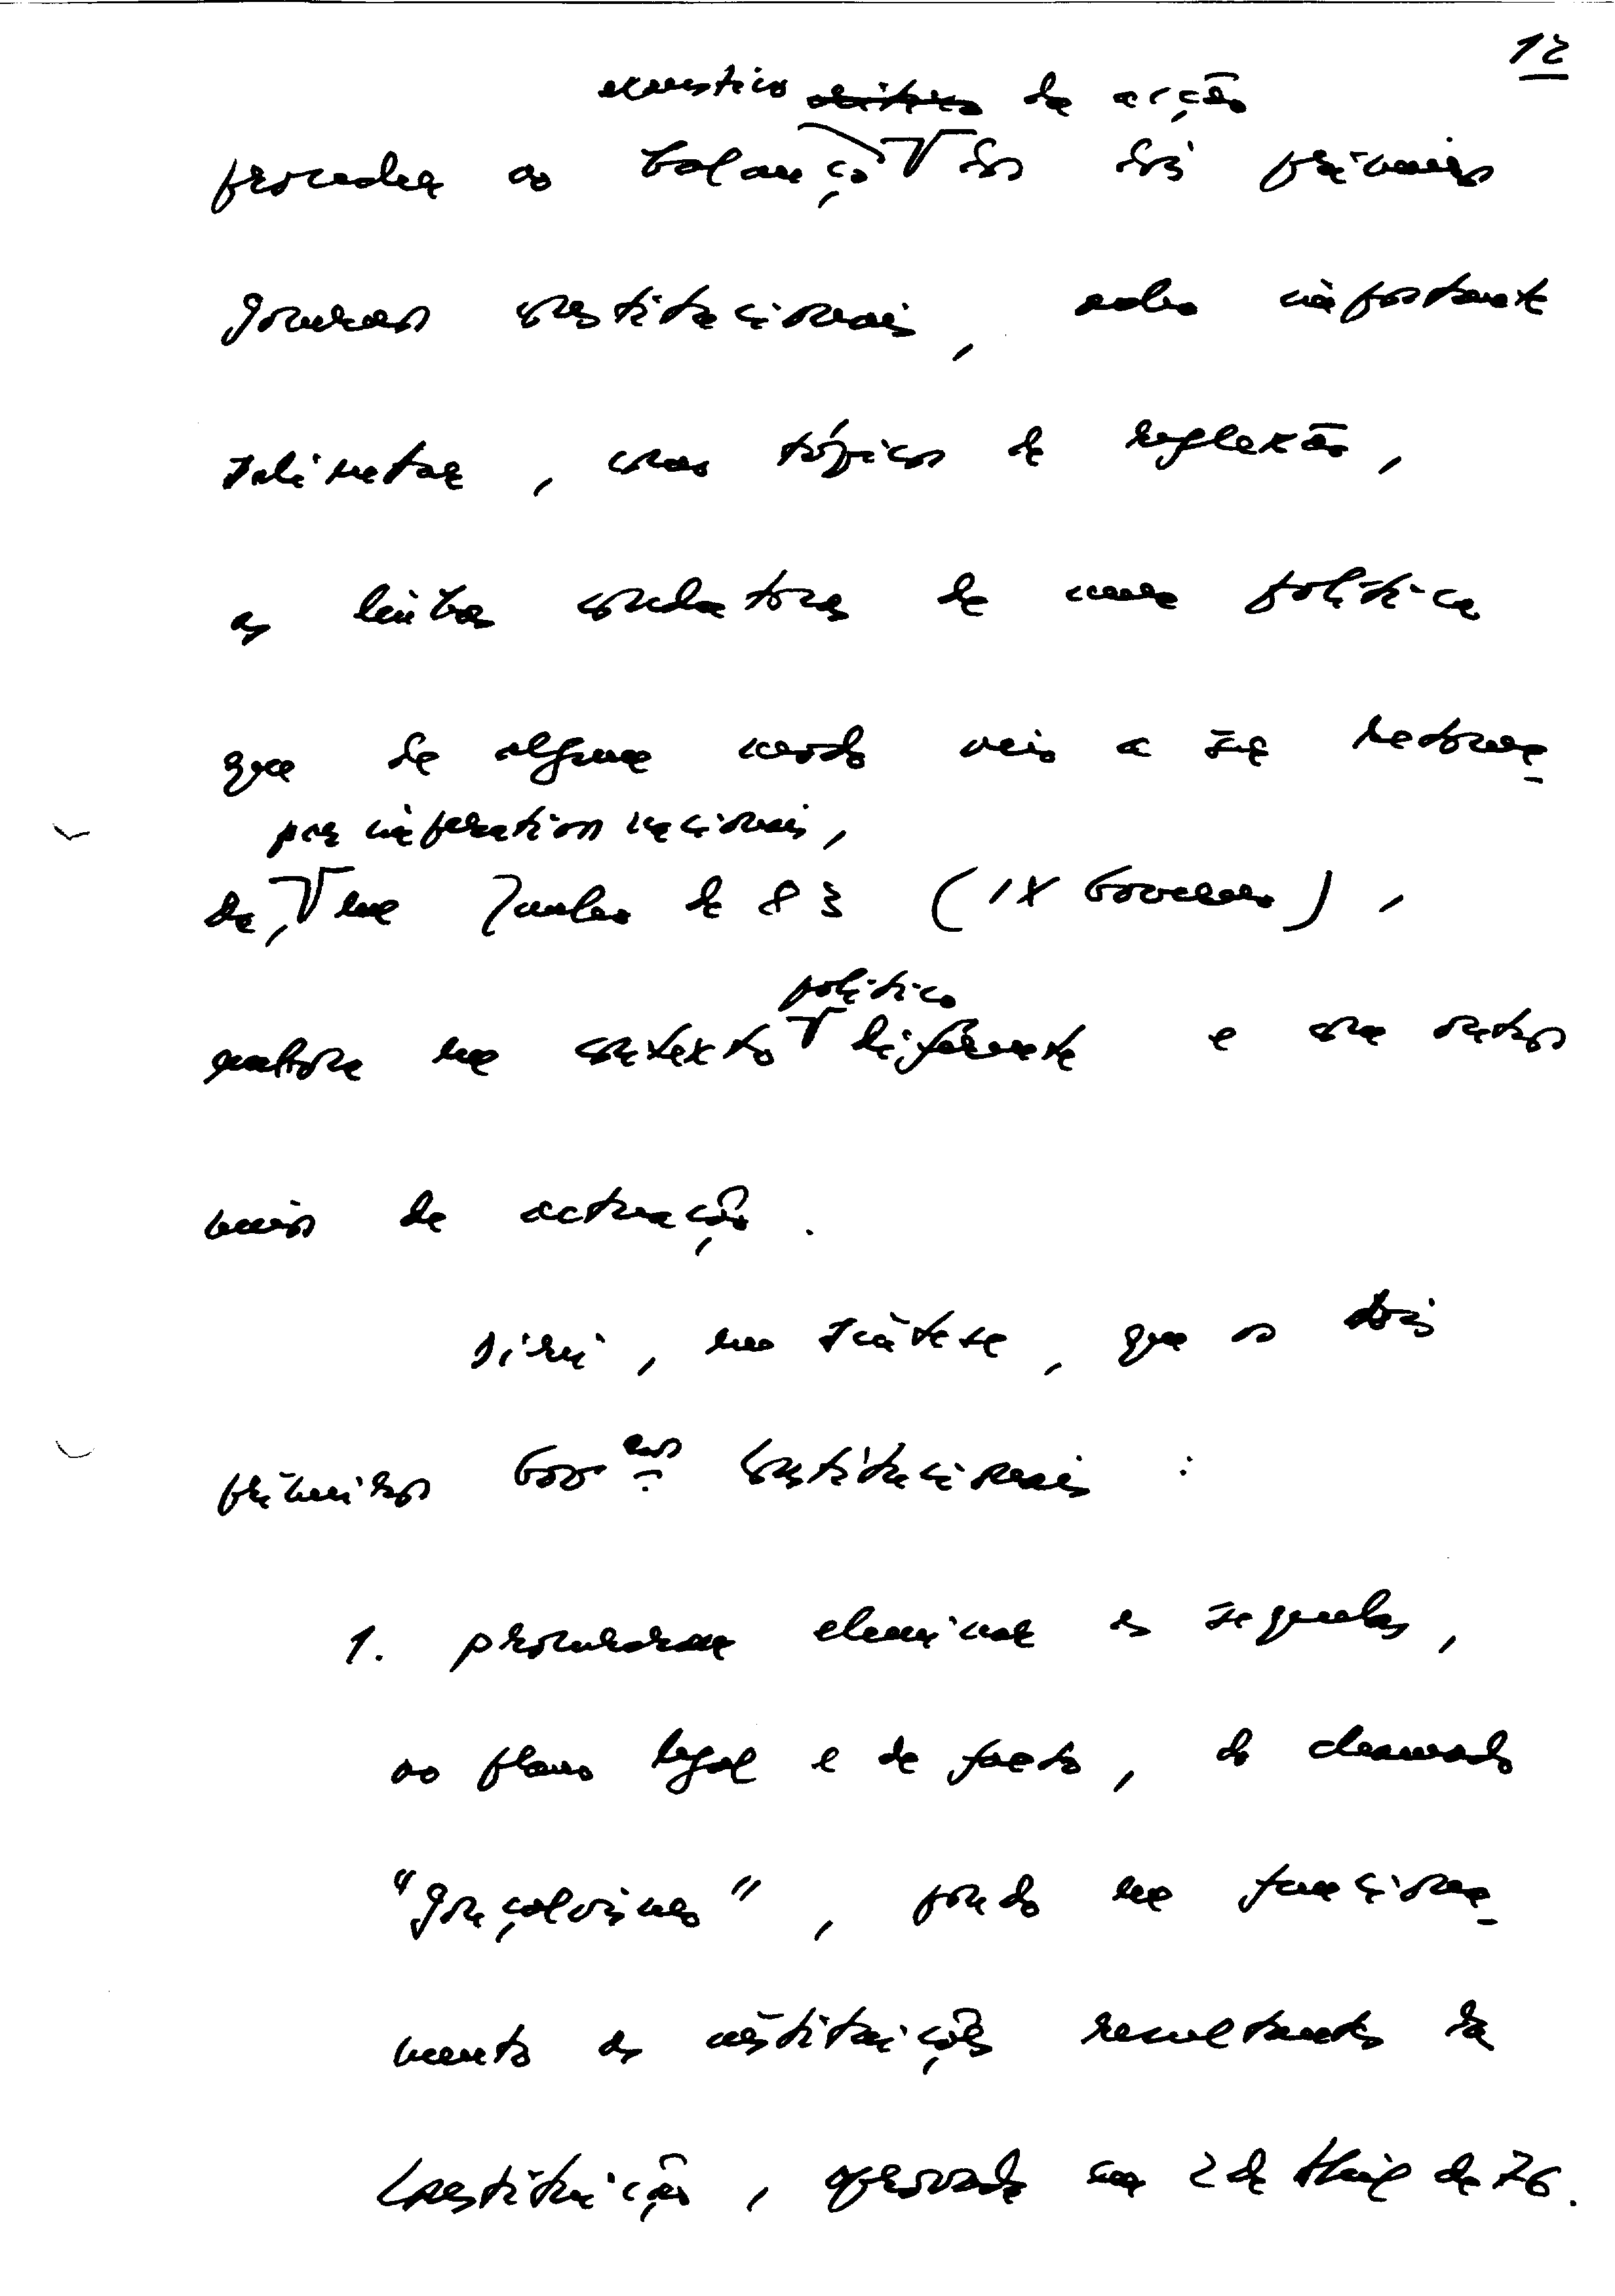 12
exaustivo crítico da acção
proceder ao balanço dos dois primeiros
governos constitucionais, acho importante
salientar, como tópicos de reflexão,
as linhas condutoras de uma política
que de algum modo veio a ser retoma-
por imperativos nacionais,
da, em Junho de 83 (IX Governo),
político
embora em contexto diferente e com outros
meios de actuação.
Direi, em síntese, que os dois
primeiros Gov.nos Constitucionais:
1. procuraram eliminar as sequelas,
no plano legal e de facto, do chamado
"gonçalvismo", pondo em funciona-
mento as instituições resultantes da
Constituição, aprovada em 2 de Abril de 76.